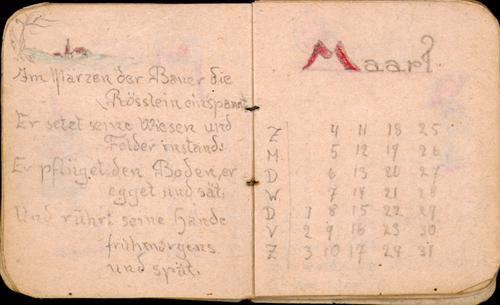 Im Märzen der Bauer die
Rösslein einspannt
Er setzt seine Wiesen und
Felder instand.
Er pflüget den Boden, er
egget und sät,
Und rührt seine Hände
frühmorgens
und spät.
Maart
Z 4 11 18 25
M 5 12 19 26
D 6 13 20 27
W 7 14 21 28
D 1 8 15 22 29
V 2 9 16 23 30
Z 3 10 17 24 31